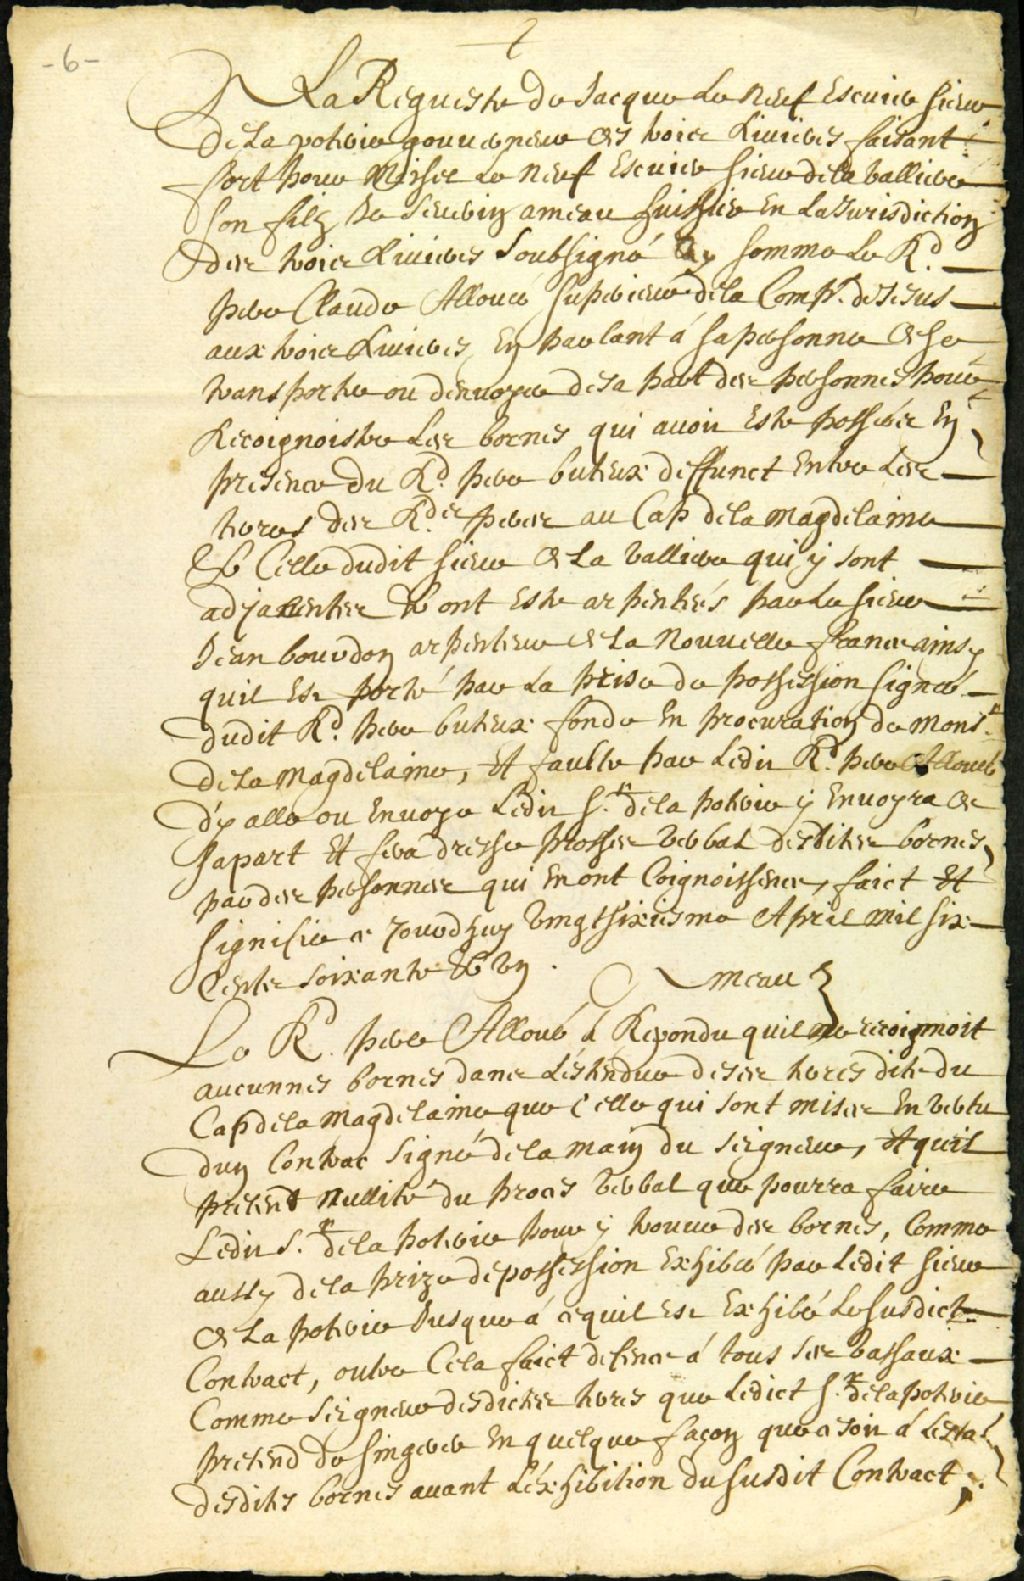 -6-
A La Requeste de Jacque Le Neuf Escuier sieur
de La poterie gouverneur des trois Rivieres faisant
fort pour Michel Le Neuf Escuier sieur de la valliere
son filz Je Seuerin ameau huissier En La Jurisdiction
des trois Rivieres soubsigné Ay sommé Le Rd.
pere Claude Alloué superieur de la Compe. de Jesus
aux trois Rivieres, En parlant à sa personne de se
transporter ou denvoyer de sa part des personnes pour
Recoignoistre Les bornes qui avoit Esté posseés En
presence du Rd. pere buteux deffunct Entre Les
terres des Rds peres au Cap de la Magdelaine
Et Celle dudit sieur de La valliere qui y sont
adjacentes Et ont Esté arpentés par Le sieur
Jean bourdon arpenteur de La Nouvelle france ainsy
quil Est porté par La prise de possession signeé
dudit Rd. pere buteux fondé En procuration de Monsr.
de La Magdelaine, Et faulte par Ledit Rd. pere Alloué
dy aller ou Envoyer Ledit Sr. de la poterie y Envoyra de
sa part Et fera dresser proces verbal desdites bornes
par des personnes qui En ont Coignoissence, faict Et
signifié ce Jourdhuy vingtsixiesme April mil six
Cents soixante Et Un.
Ameau
Le Rd. pere Alloué à Repondu quil ne recoignoit
aucunnes bornes dans L'estendue de ses terres dite du
Cap de la Magdelaine que celle qui sont mises En vertu
dun Contrac signé de la main du seigneur, Et quil
pretent Nullité du proces verbal que pourra faire
Ledit Sr. de la poterie pour y trouver des bornes, Comme
aussy de la prize de possession Exhibeé par Ledit sieur
de La poterie Jusque à ce quil Est Exhibé Le susdict
Contract, outre Cela faict defence à tous ses vassaux
Comme seigneur desdictes terres que Ledict Sr. de la poterie
pretend de singerer En quelque façon que ce soit à Lestat
desdits bornes avant L'exhibition du susdit Contract,